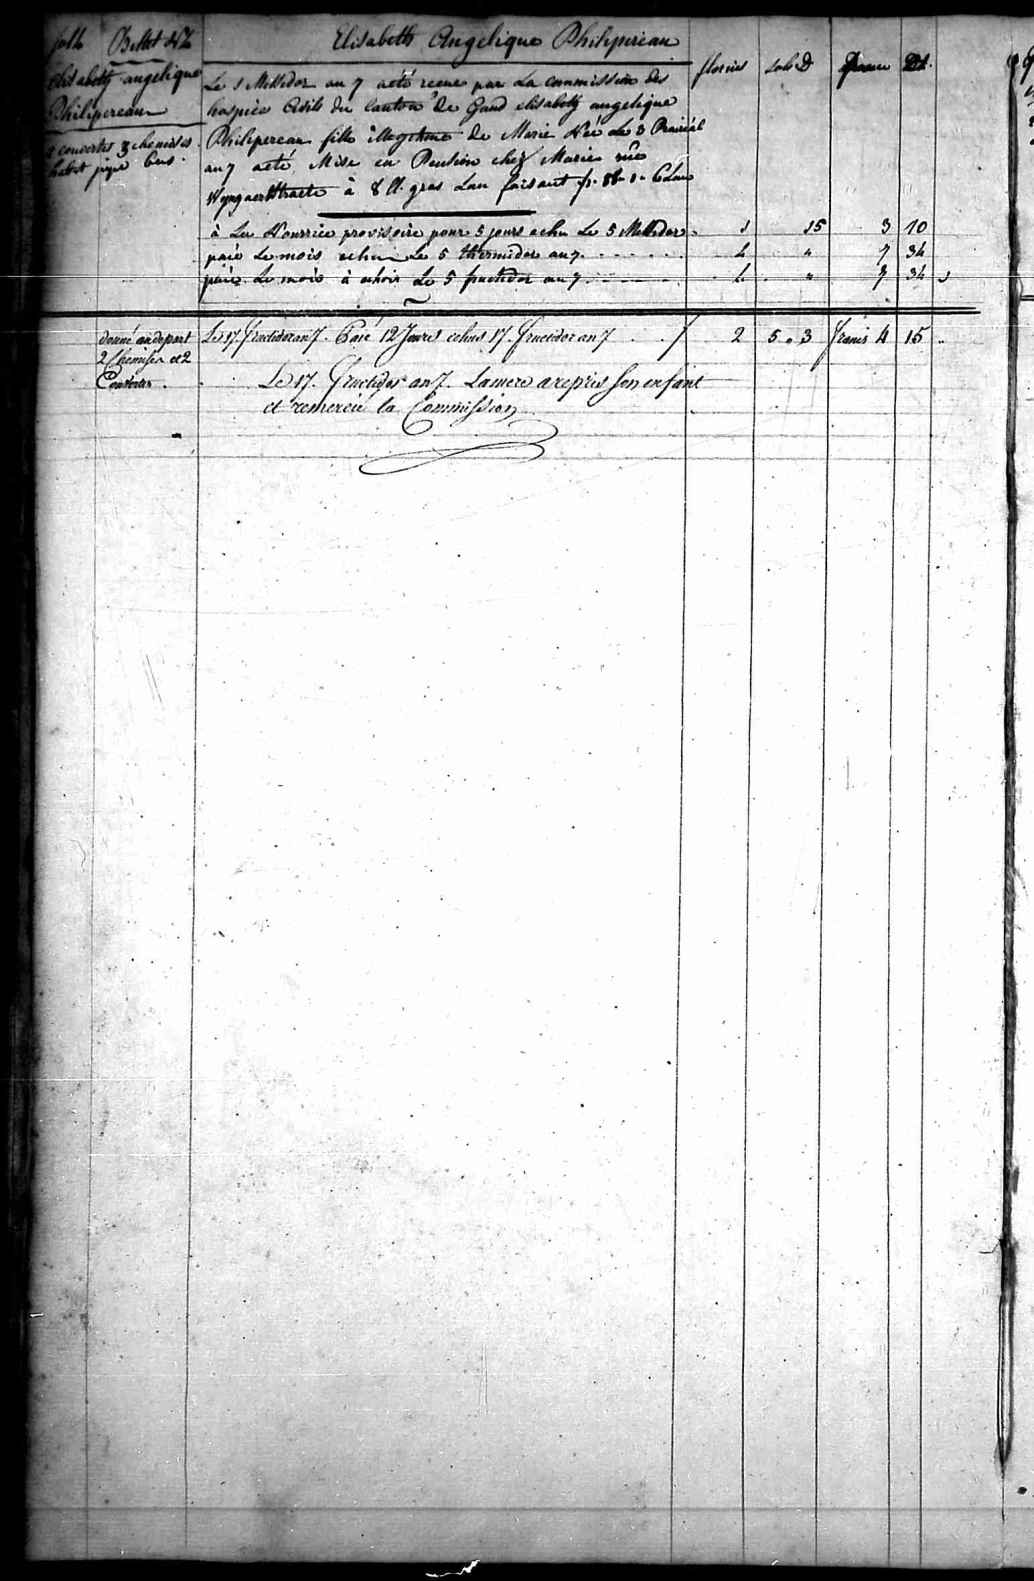 Billet N° 2
Elisabeth Angelique
Philipereau
2 couvertes 3 chemises
Elisabeth Angelique Philipereau
florins sols D france
Le 1 Messidor an 7 a été recue par La commission des
hospice Civils du Canton de Gand elisabeth angelique
Philipereau fille illegitime de Marie Née Le 3 Prairial
an 7 a eté Mise en Pension chez Marie rue
Wyngaertstraete à 8 ll. gros L'an faisant
à La Nourrice provisoire pour 5 jours echu Le 5 Messidor 1 15 3 10
paié Le mois echu Le 5 thermidor an 7 4 " 7 34
paié Le mois à echoir Le 5 fructidor an 7 4 " 7 34
donné au depart
2 Chemises et 2
Couvertes
Le 17. fructidor an 7. Paié 12 Jours echus 17. fructidor an 7 2 5 " 3 francs 4 15
Le 17. fructidor an 7. La mere a repris son enfant
et remercié la Commission